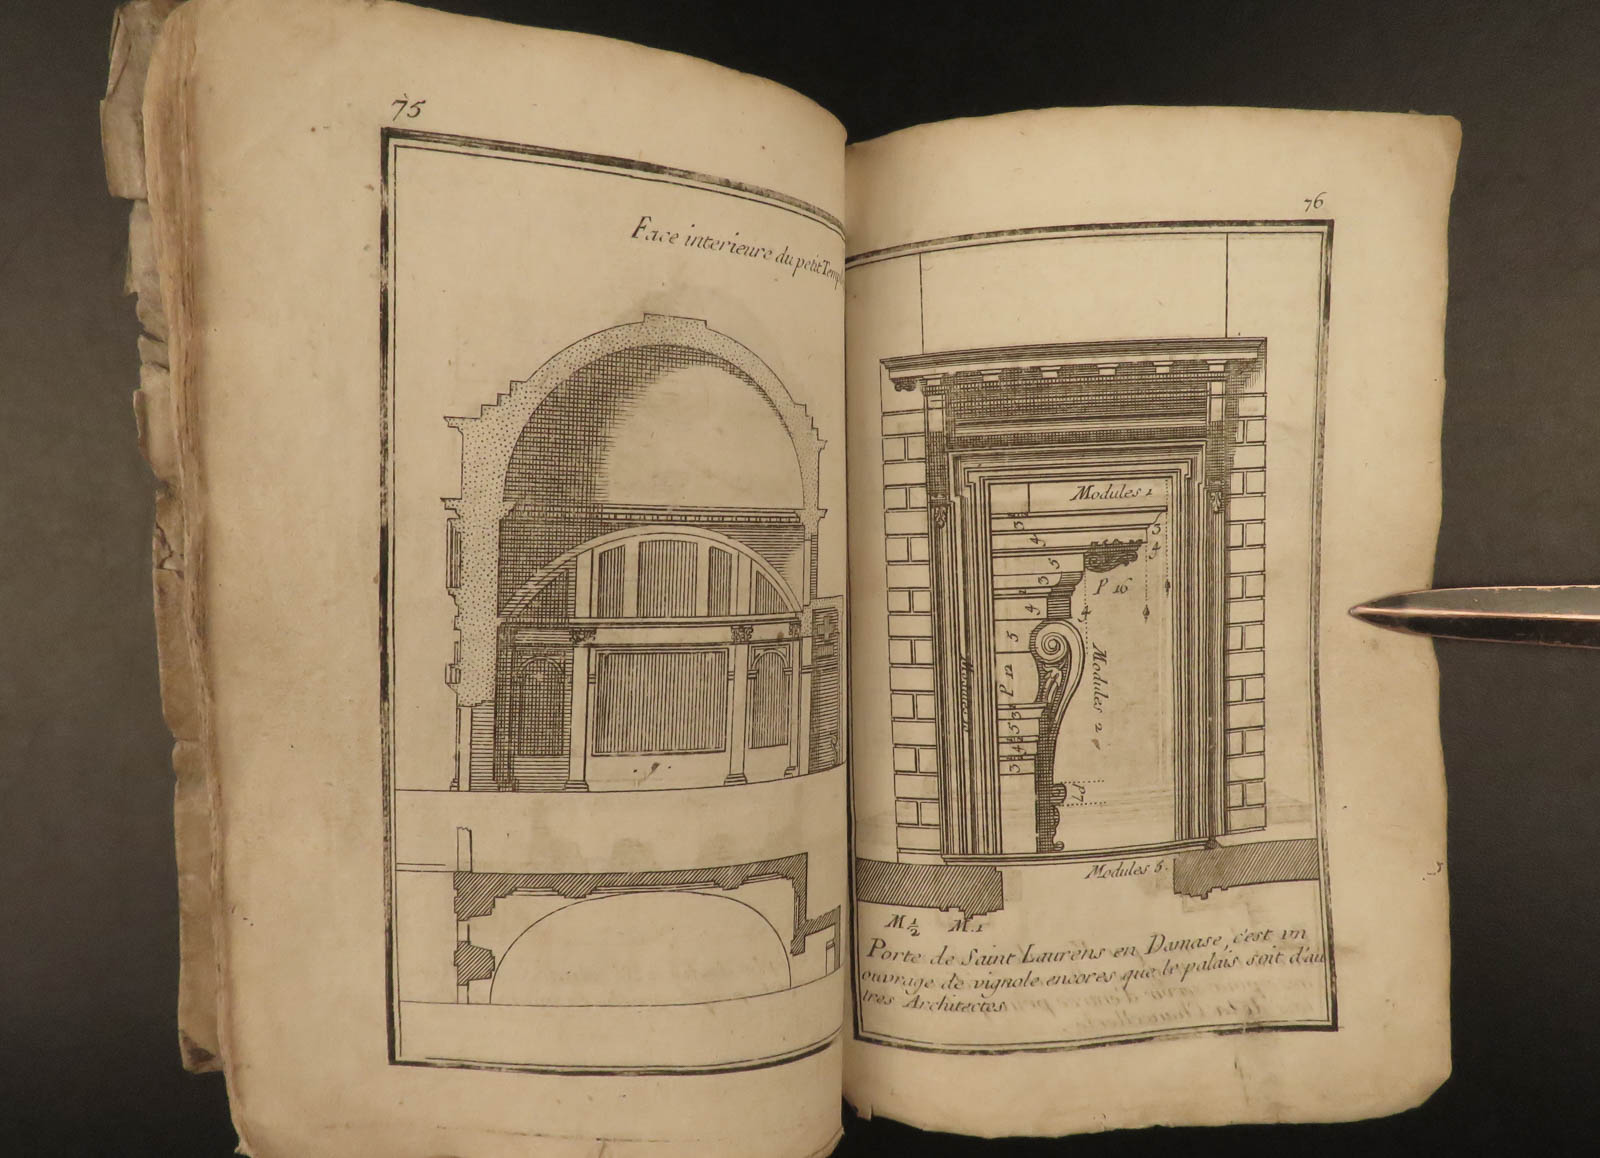 75
Face interieure du petit Temp
76
Modules 1
3
4
3
4
5
3
P 16
4
4
5
Modules 2
P 12
3
5
4
3
P 7
Modules 5.
M 1/2
M. 1
Porte de Saint Laurens en Damase, c'est vn
ouvrage de vignole encores que le palais soit d'au
tres Architectes